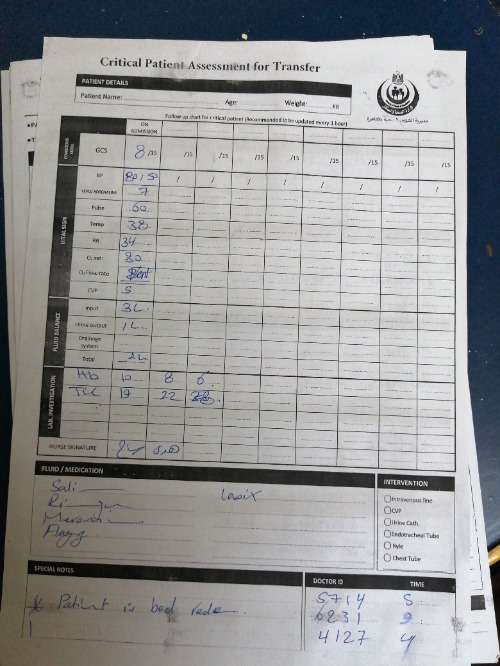 Critical Patient Assessment for Transfer
PATIENT DETAILS
Patient Name: Age: Weight: KG
Follow up chart for critical patient (Recommended to be updated every 1 hour)
ON ADMISSION
CONSCIOUS LEVEL
GCS 8 /15 /15 /15 /15 /15 /15 /15 /15
VITAL SIGN
BP 80 / 50 / / / / / / /
7
Pulse 60
Temp 38
RR 34
O2 sat 80
O2 Flow rate
CVP 5
FLUID BALANCE
Input 3L
Urine output 1L
Drainage system
Total 2L
LAB. INVESTIGATION
Hb 10 8 6
TLC 19 22
NURSE SIGNATURE
FLUID / MEDICATION
Lasix
Flagy
INTERVENTION
Intravenous line
CVP
Urine Cath.
Endotracheal Tube
Ryle
Chest Tube
SPECIAL NOTES
* Patient is bed rede
DOCTOR ID TIME
5714 5
6231 9
4127 4